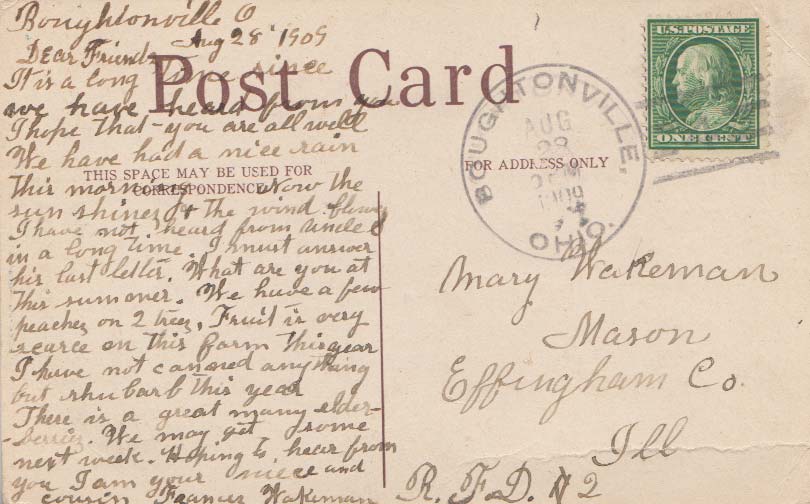 Boughtonville O
Aug 28 1909
Dear Friends
It is a long time since
we have heard from you
I hope that you are all well
We have had a nice rain
this morning. Now the
sun shines & the wind blows
I have not heard from Uncle E
in a long time. I must answer
his last letter. What are you at
this summer. We have a few
peaches on 2 trees. Fruit is very
scarce on this farm this year
I have not canned anything
but rhubarb this year
There is a great many elder-
-berries. We may get some
next week. Hoping to hear from
you I am your niece and
cousin Frances Wakeman
Post Card
THIS SPACE MAY BE USED FOR
CORRESPONDENCE
FOR ADDRESS ONLY
U.S. POSTAGE
ONE CENT
BOUGHTONVILLE,
OHIO.
AUG
28
PM
1909
Mary Wakeman
Mason
Effingham Co.
Ill
R. F. D. # 2